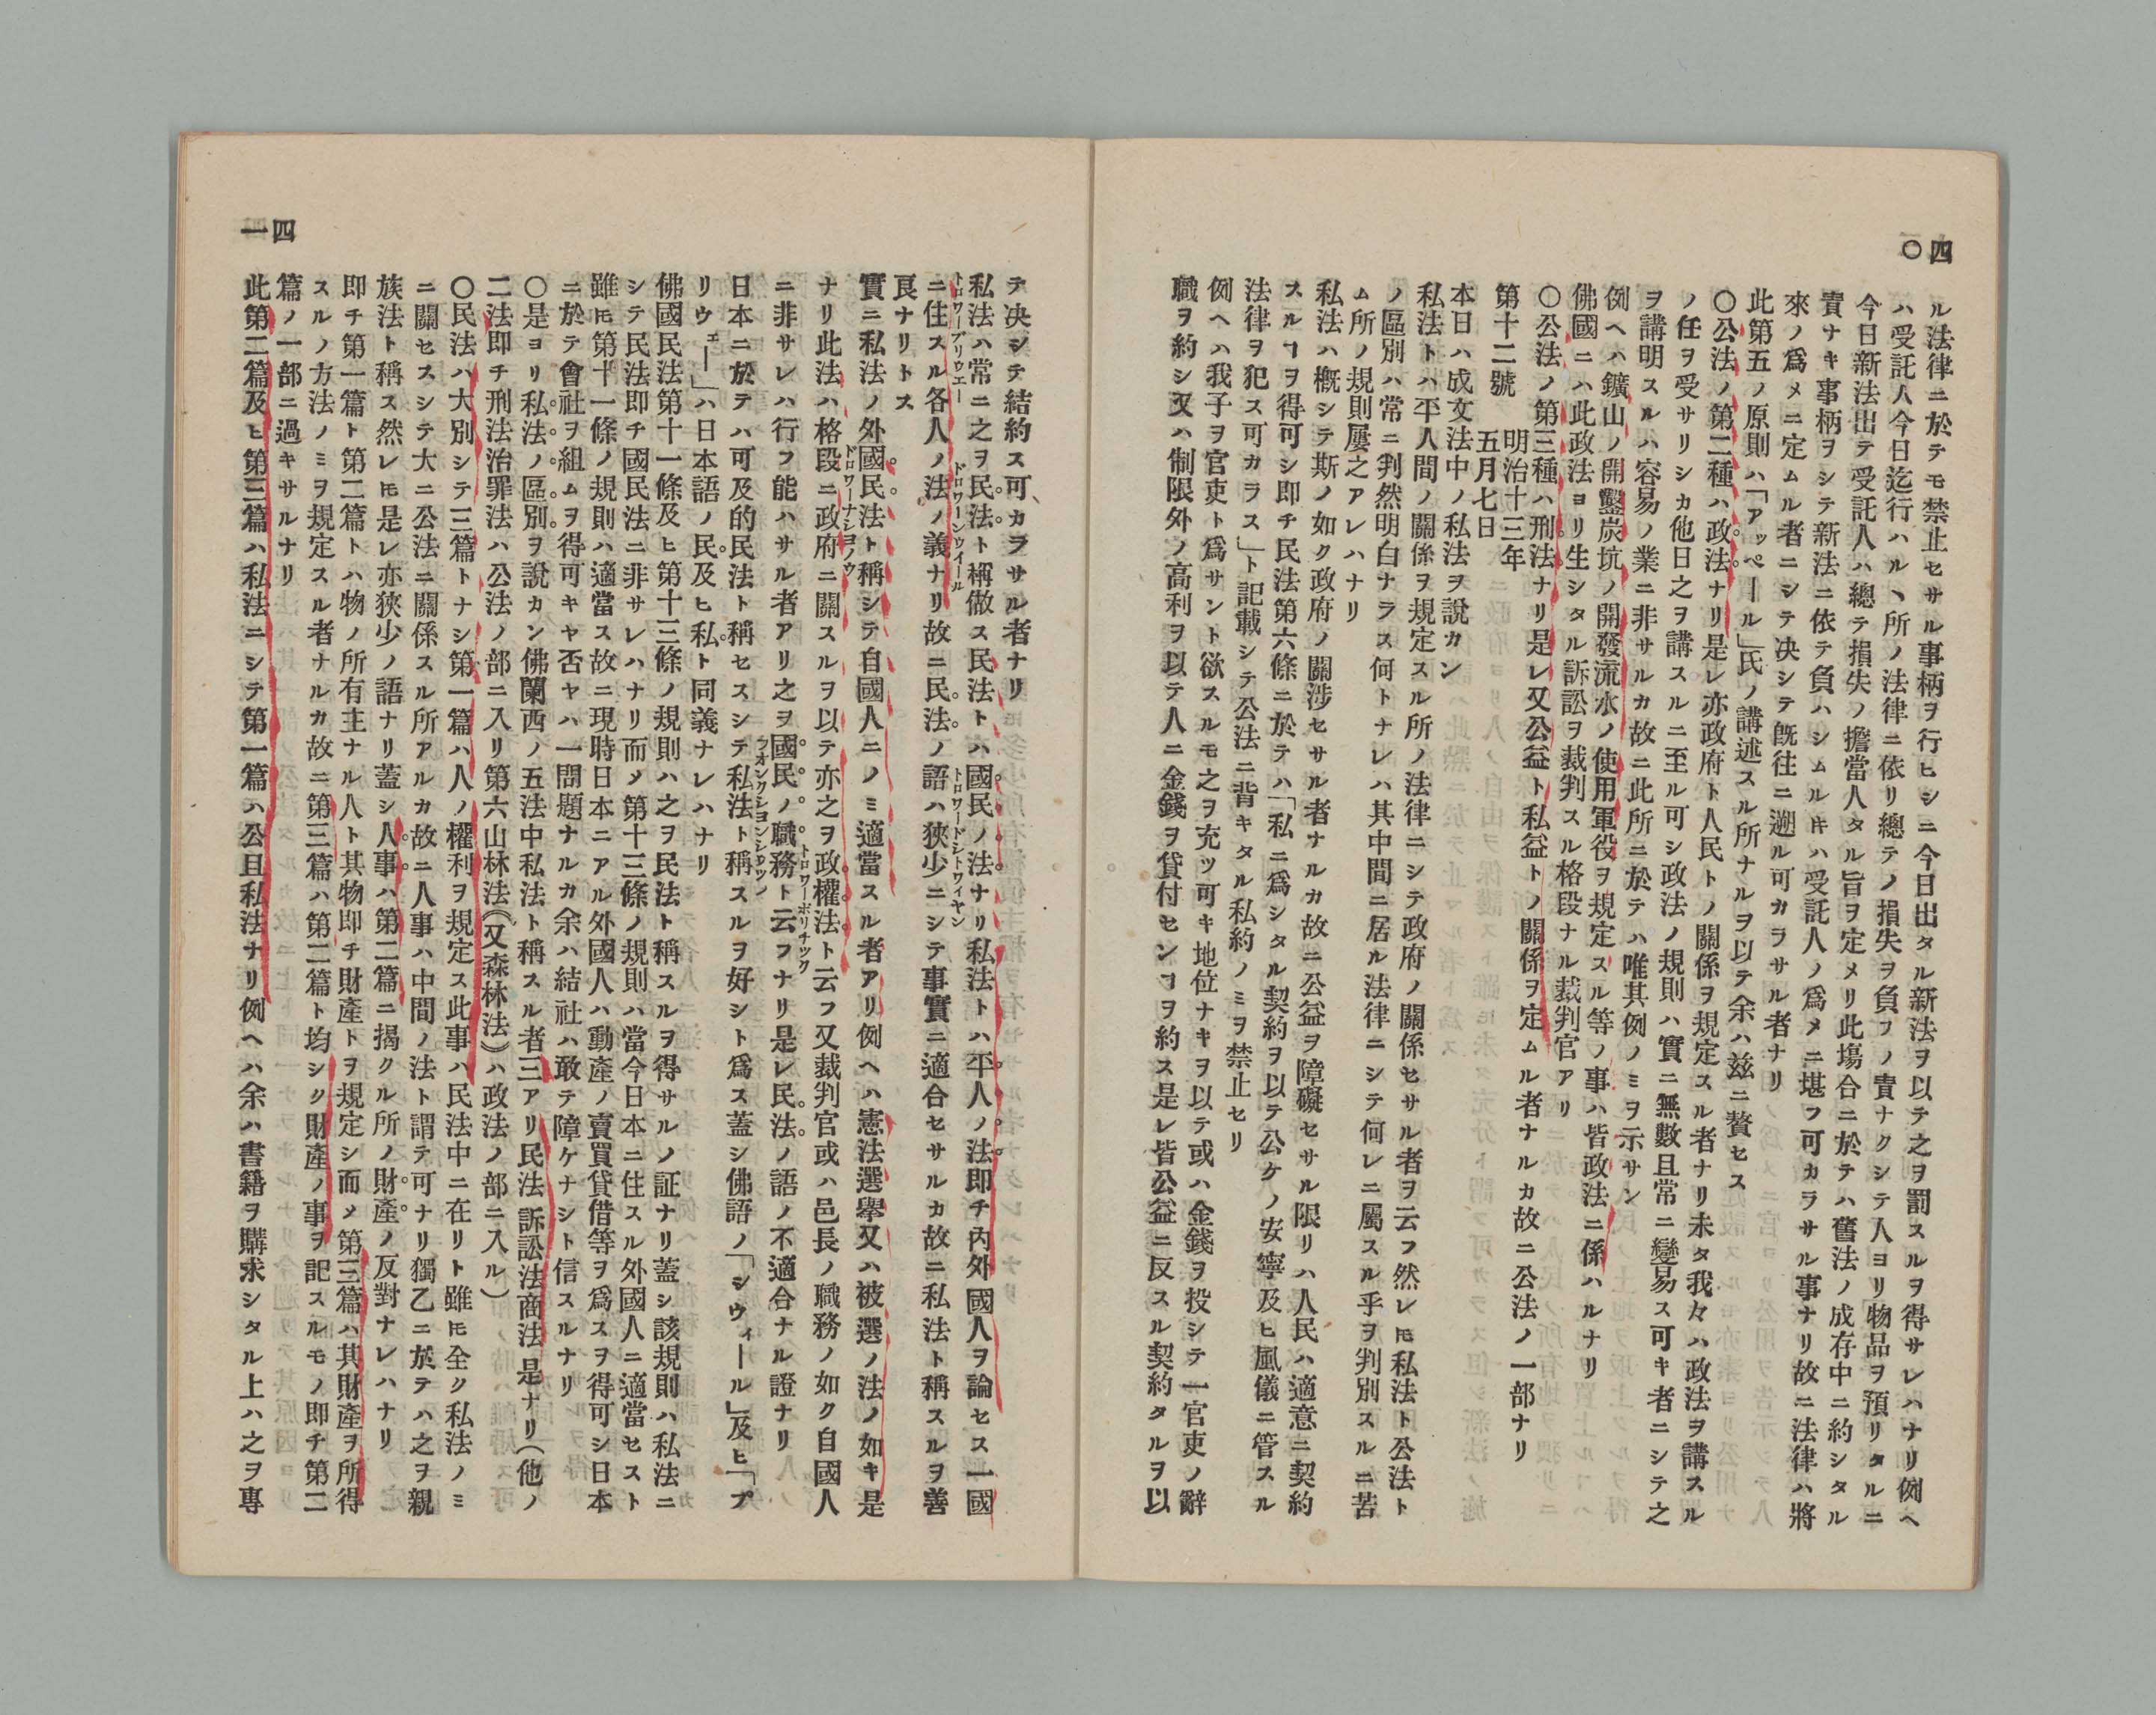 四〇
ル法律ニ於テモ禁止セサル事柄ヲ行ヒシニ今日出タル新法ヲ以テ之ヲ罰スルヲ得サレハナリ例ヘ
ハ受託人今日迄行ハルヽ所ノ法律ニ依リ總テノ損失ヲ負フノ責ナクシテ人ヨリ物品ヲ預リタルニ
今日新法出テ受託人ハ總テ損失ノ擔當人タル旨ヲ定メリ此塲合ニ於テハ舊法ノ成存中ニ約シタル
責ナキ事柄ヲシテ新法ニ依テ負ハシムルㇳキハ受託人ノ爲メニ堪フ可カラサル事ナリ故ニ法律ハ將
來ノ爲メニ定ムル者ニシテ决シテ旣往ニ遡ル可カラサル者ナリ
此第五ノ原則ハ「アッペール」氏ノ講述スル所ナルヲ以テ余ハ玆ニ贅セス
〇公法ノ第二種ハ政法ナリ是レ亦政府ト人民トノ關係ヲ規定スル者ナリ未タ我々ハ政法ヲ講スル
ノ任ヲ受サリシカ他日之ヲ講スルニ至ル可シ政法ノ規則ハ實ニ無數且常ニ變易ス可キ者ニシテ之
ヲ講明スルハ容易ノ業ニ非サルカ故ニ此所ニ於テハ唯其例ノミヲ示サン
例ヘハ鑛山ノ開鑿炭坑ノ開發流水ノ使用軍役ヲ規定スル等ノ事ハ皆政法ニ係ハルナリ
佛國ニハ此政法ヨリ生シタル訴訟ヲ裁判スル格段ナル裁判官アリ
〇公法ノ第三種ハ刑法ナリ是レ又公益ト私益トノ關係ヲ定ムル者ナルカ故ニ公法ノ一部ナリ
第十二號　明治十三年五月七日
本日ハ成文法中ノ私法ヲ說カン
私法トハ平人間ノ關係ヲ規定スル所ノ法律ニシテ政府ノ關係セサル者ヲ云フ然レㇳモ私法ト公法ト
ノ區別ハ常ニ判然明白ナラス何トナレハ其中間ニ居ル法律ニシテ何レニ屬スル乎ヲ判別スルニ苦
ム所ノ規則屢之アレハナリ
私法ハ槪シテ斯ノ如ク政府ノ關涉セサル者ナルカ故ニ公益ヲ障礙セサル限リハ人民ハ適意ニ契約
スルヿヲ得可シ即チ民法第六條ニ於テハ「私ニ爲シタル契約ヲ以テ公ケノ安寧及ヒ風儀ニ管スル
法律ヲ犯ス可カラス」ト記載シテ公法ニ背キタル私約ノミヲ禁止セリ
例ヘハ我子ヲ官吏ト爲サント欲スルモ之ヲ充ッ可キ地位ナキヲ以テ或ハ金錢ヲ投シテ一官吏ノ辭
職ヲ約シ又ハ制限外ノ高利ヲ以テ人ニ金錢ヲ貸付センヿヲ約ス是レ皆公益ニ反スル契約タルヲ以
四一
テ决シテ結約ス可カラサル者ナリ
私法ハ常ニ之ヲ民法ト稱做ス民法トハ國民ノ法ナリ私法トハ平人ノ法即チ内外國人ヲ論セス一國
ニ住スル各人ノ法ノ義ナリ故ニ民法ノ語ハ狹少ニシテ事實ニ適合セサルカ故ニ私法ト稱スルヲ善
良ナリトス
實ニ私法ノ外國民法ト稱シテ自國人ニノミ適當スル者アリ例ヘハ憲法選擧又ハ被選ノ法ノ如キ是
ナリ此法ハ格段ニ政府ニ關スルヲ以テ亦之ヲ政權法ト云フ又裁判官或ハ邑長ノ職務ノ如ク自國人
ニ非サレハ行フ能ハサル者アリ之ヲ國民ノ職務ト云フナリ是レ民法ノ語ノ不適合ナル證ナリ
日本ニ於テハ可及的民法ト稱セスシテ私法ト稱スルヲ好シト爲ス蓋シ佛語ノ「シウィール」及ヒ「プ
リウェー」ハ日本語ノ民及ヒ私ト同義ナレハナリ
佛國民法第十一條及ヒ第十三條ノ規則ハ之ヲ民法ト稱スルヲ得サルノ証ナリ蓋シ該規則ハ私法ニ
シテ民法即チ國民法ニ非サレハナリ而メ第十三條ノ規則ハ當今日本ニ住スル外國人ニ適當セスト
雖ㇳモ第十一條ノ規則ハ適當ス故ニ現時日本ニアル外國人ハ動產ノ賣買貸借等ヲ爲スヲ得可シ日本
ニ於テ會社ヲ組ムヲ得可キヤ否ヤハ一問題ナルカ余ハ結社ハ敢テ障ケナシト信スルナリ
〇是ヨリ私法ノ區別ヲ說カン佛蘭西ノ五法中私法ト稱スル者三アリ民法訴訟法商法是ナリ(他ノ
二法即チ刑法治罪法ハ公法ノ部ニ入リ第六山林法(又森林法)ハ政法ノ部ニ入ル)
〇民法ハ大別シテ三篇トナシ第一篇ハ人ノ權利ヲ規定ス此事ハ民法中ニ在リト雖ㇳモ全ク私法ノミ
ニ關セスシテ大ニ公法ニ關係スル所アルカ故ニ人事ハ中間ノ法ト謂テ可ナリ獨乙ニ於テハ之ヲ親
族法ト稱ス然レㇳモ是レ亦狹少ノ語ナリ蓋シ人事ハ第二篇ニ揭クル所ノ財產ノ反對ナレハナリ
即チ第一篇ト第二篇トハ物ノ所有主ナル人ト其物即チ財產トヲ規定シ而メ第三篇ハ其財產ヲ所得
スルノ方法ノミヲ規定スル者ナルカ故ニ第三篇ハ第二篇ト均シク財產ノ事ヲ記スルモノ即チ第二
篇ノ一部ニ過キサルナリ
此第二篇及ヒ第三篇ハ私法ニシテ第一篇ハ公且私法ナリ例ヘハ余ハ書籍ヲ購求シタル上ハ之ヲ專